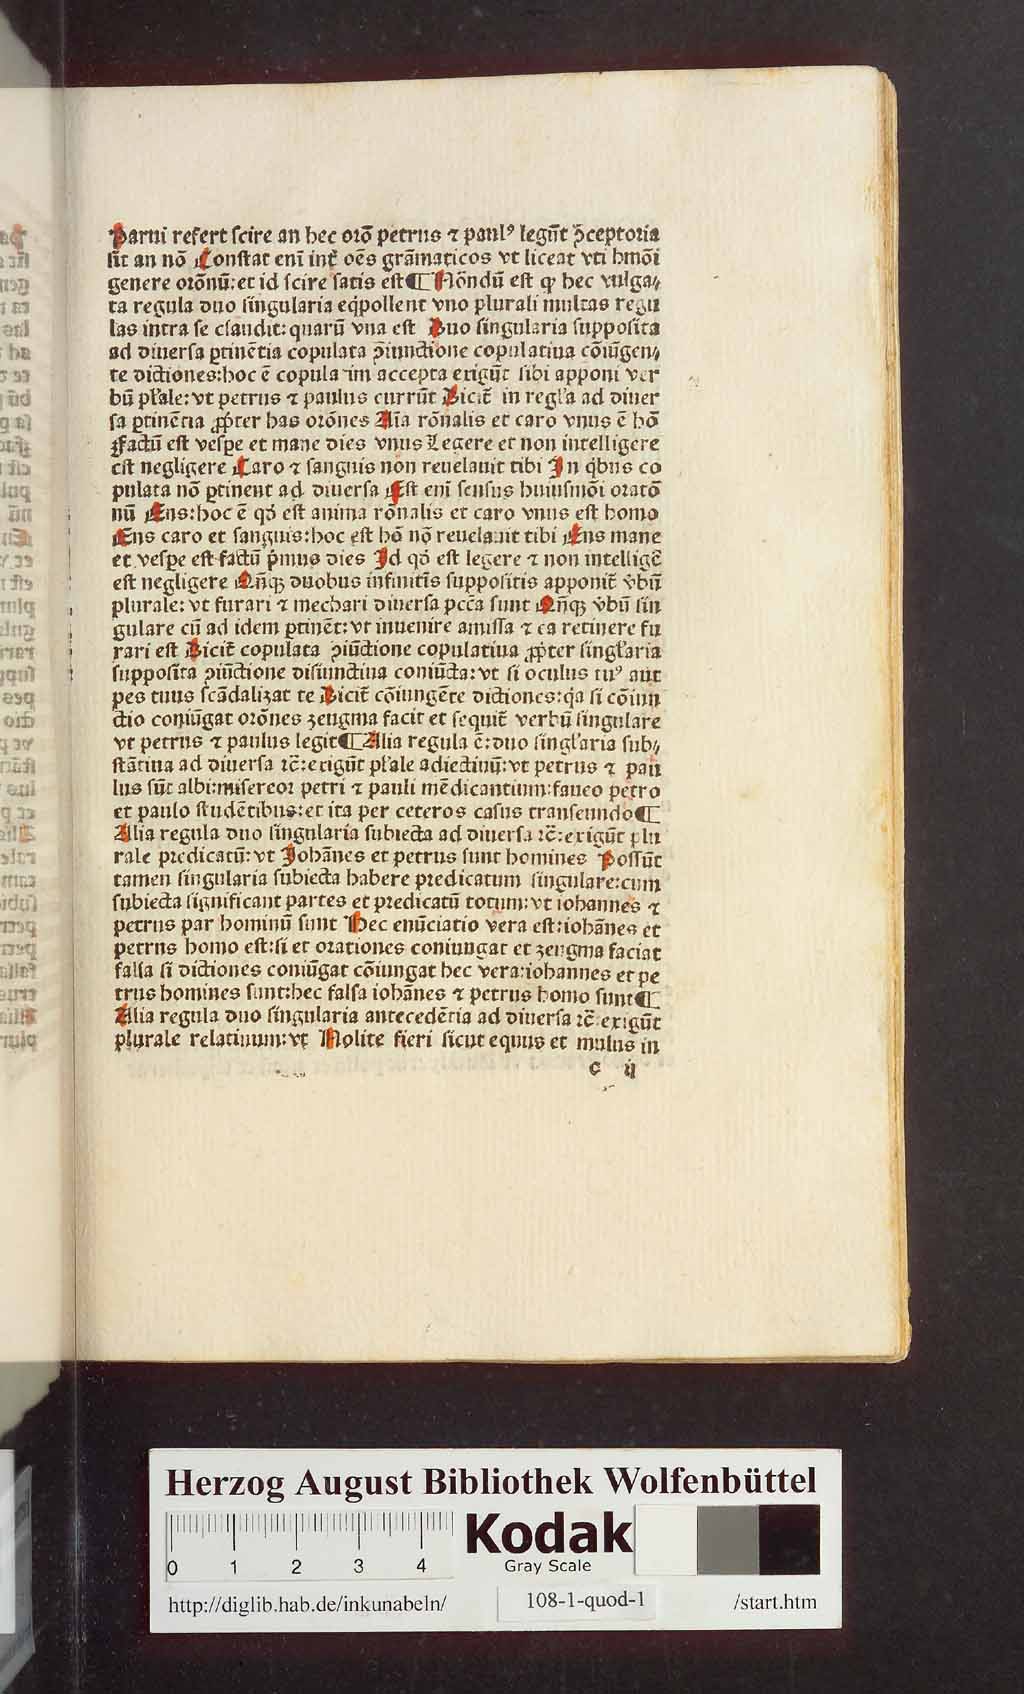 Parui refert scire an hec orō petrus ⁊ paulꝰ legūt p̄ceptoria
sūt an nō Constat enī int̄ oēs grāmaticos vt liceat vti hmōi
genere orōnū: et id scire satis est ¶ Nōndū est ꝙ hec vulga⸗
ta regula duo singularia eq̄pollent vno plurali multas regu
las intra se claudit: quarū vna est Duo singularia supposita
ad diuersa ꝑtinētia copulata ꝯiunctione copulatiua cōiūgen⸗
te dictiones: hoc ē copulatim accepta exigūt sibi apponi ver
bū plale: vt petrus ⁊ paulus currūt Dicit̄ in regla ad diuer
sa ꝑtinētia ꝓpter has orōnes Aīa rōnalis et caro vnus ē hō
Factū est vesꝑe et mane dies vnus Legere et non intelligere
est negligere Caro ⁊ sanguis non reuelauit tibi In qͥbus co
pulata nō ꝑtinent ad diuersa Est enī sensus huiusmōi oratō
nū Ens: hoc ē qd̄ est anima rōnalis et caro vnus est homo
Ens caro et sanguis: hoc est hō nō reuelauit tibi Ens mane
et vesꝑe est factū p̄mus dies Id qd̄ est legere ⁊ non intelligē
est negligere Qn̄qꝫ duobus infinitis suppositis apponit̄ v̄bū
plurale: vt furari ⁊ mechari diuersa pccā sunt Qn̄qꝫ v̄bū sin
gulare cū ad idem ꝑtinēt: vt inuenire amissa ⁊ ea retinere fu
rari est Dicit̄ copulata ꝯiūctione copulatiua ꝓpter singlaria
supposita ꝯiūctione disiunctiua coniūcta: vt si oculus tuꝰ aut
pes tuus scādalizat te Dicit̄ cōiungēte dictiones: qͥa si cōiun
ctio coniūgat orōnes zeugma facit et sequit̄ verbū singulare
vt petrus ⁊ paulus legit ¶ Alia regula ē: duo singlaria sub⸗
stātiua ad diuersa ⁊c̄: exigūt plale adiectiuū: vt petrus ⁊ pau
lus sūt albi: misereor petri ⁊ pauli mēdicantium: faueo petro
et paulo studētibus: et ita per ceteros casus transeundo ¶
Alia regula duo singularia subiecta ad diuersa ⁊c̄: exigūt plu
rale predicatū: vt Johānes et petrus sunt homines Possūt
tamen singularia subiecta habere predicatum singulare: cum
subiecta significant partes et predicatū totum: vt iohannes ⁊
petrus par hominū sunt Hec enūciatio vera est: iohānes et
petrus homo est: si et orationes coniungat et zeugma faciat
falsa si dictiones coniūgat cōiungat hec vera: iohannes et pe
trus homines sunt: hec falsa iohānes ⁊ petrus homo sunt ¶
Alia regula duo singularia antecedētia ad diuersa ⁊c̄ exigūt
plurale relatiuum: vt Nolite fieri sicut equus et mulus in
c ij
Herzog August Bibliothek Wolfenbüttel
Kodak
Gray Scale
0 1 2 3 4
http://diglib.hab.de/inkunabeln/ 108-1-quod-1 /start.htm